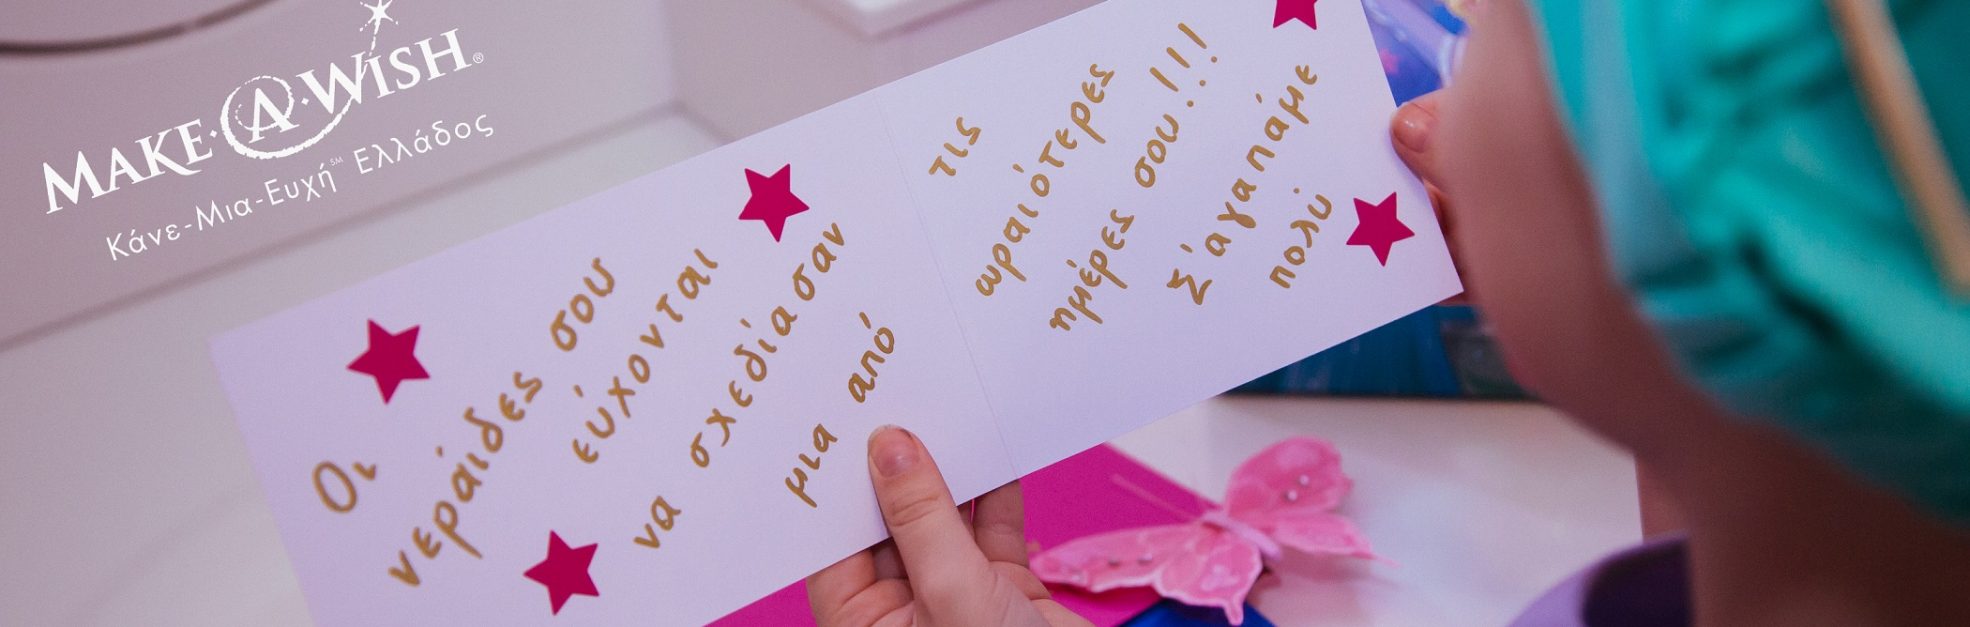 MAKE·A·WISH®
Κάνε-Μια-Ευχή℠ Ελλάδος
Οι
νεράιδες σου
εύχονται
να σχεδίασαν
μια από
τις
ωραιότερες
ημέρες σου!!!
Σ'αγαπάμε
πολύ